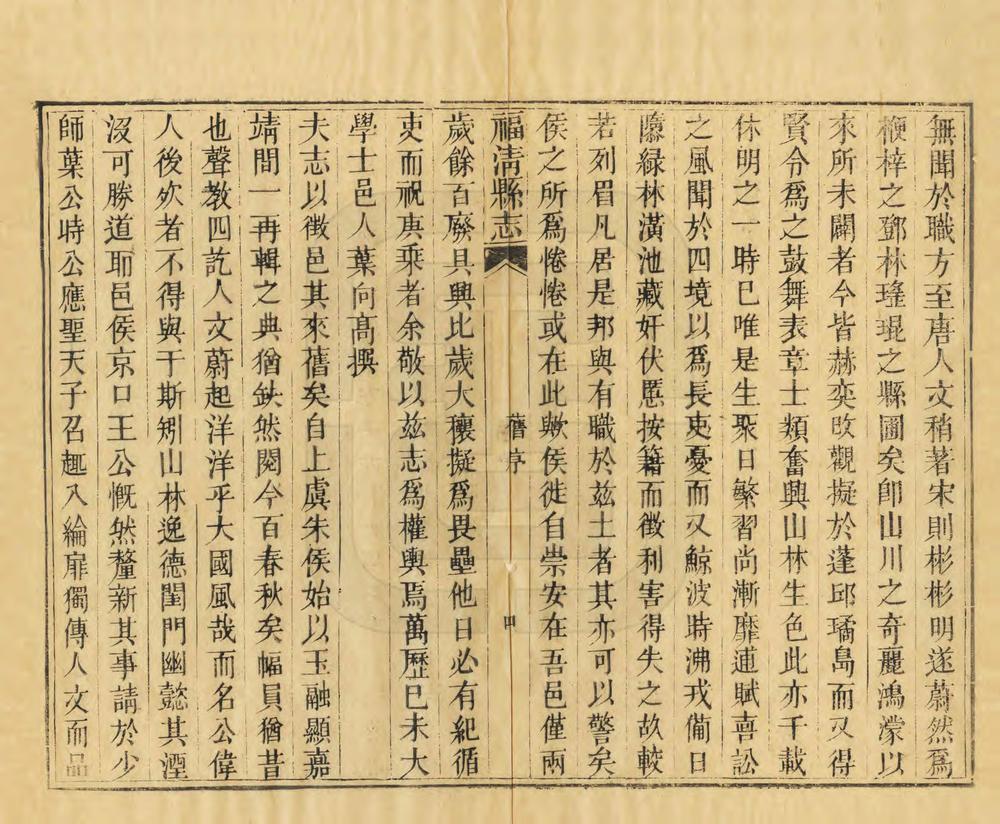 無聞於職方至唐人文稍著宋則彬彬明遂蔚然爲
楩梓之鄧林瑤琨之縣圃矣卽山川之奇麗鴻濛以
來所未闢者今皆赫奕改觀擬於蓬邱璚島而又得
賢令爲之鼓舞表章士類奮興山林生色此亦千載
休明之一時巳唯是生聚日繁習尚漸靡逋賦喜訟
之風聞於四境以爲長吏憂而又鯨波時沸戎備日
隳綠林潢池藏奸伏慝按籍而徵利害得失之故較
若列眉凡居是邦與有職於兹土者其亦可以警矣
侯之所爲惓惓或在此歟侯徙自崇安在吾邑僅兩
福清縣志 舊序 四
歲餘百廢具興比歲大穰擬爲畏壘他日必有紀循
吏而祝庚乘者余敬以兹志爲權輿焉萬歷巳未大
學士邑人葉向高撰
夫志以徵邑其來舊矣自上虞朱侯始以玉融顯嘉
靖間一再輯之典猶缺然閱今百春秋矣幅員猶昔
也聲教四訖人文蔚起洋洋乎大國風哉而名公偉
人後歿者不得與于斯矧山林逸德閨門幽懿其湮
沒可勝道耶邑侯京口王公慨然釐新其事請於少
師葉公時公應聖天子召趣入綸扉獨傳人文而品